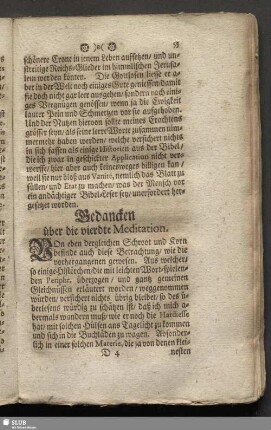 53
schönere Crone in jenem Leben auffsetzen / und un-
streitige Reichs-Glieder im himmlischen Jerusa-
lem werden könten. Die Gottlosen liesse er a-
ber in der Welt noch einiges Gute geniessen / damit
sie doch nicht gar leer ausgehen / sondern noch eini-
ges Vergnügen genössen / wenn ja die Ewigkeit
lauter Pein und Schmertzen vor sie aufgehoben.
Und der Nutzen hiervon sollte meines Erachtens
grösser seyn / als seine leere Worte zusammen nim-
mermehr haben werden / welche versichert nichts
in sich fassen als einige Historien aus der Bibel /
die ich zwar in geschickter Application nicht ver-
werffe / hier aber auch keinesweges billigen kan /
weil sie nur bloß aus Vanité, nemlich das Blatt zu
füllen / und Etat zu machen / was der Mensch vor
ein andächtiger Bibel-Leser sey / unerfordert her-
gesetzet worden.
Gedancken
über die vierdte Meditation.
VOn eben dergleichen Schroot und Korn
befinde auch diese Betrachtung / wie die
vorhergangenen gewesen. Aus welcher /
so einige Histörchen / die mit leichten Wort-spielen-
den überzogen / und gantz gemeinen
Gleichnissen erläutert worden / weggenommen
würden / versichert nichts übrig bleibet / so des ü-
berlesens würdig zu schätzen ist / daß ich mich a-
bermals wundern muß / wie er noch die Hardiesse
hat / mit solchen Hülsen ans Tagelicht zu kommen
und sich in die Buchläden zu wagen. Absonder-
lich in einer solchen Materie, die ja von denen Hei-
D 4 nesten
SLUB